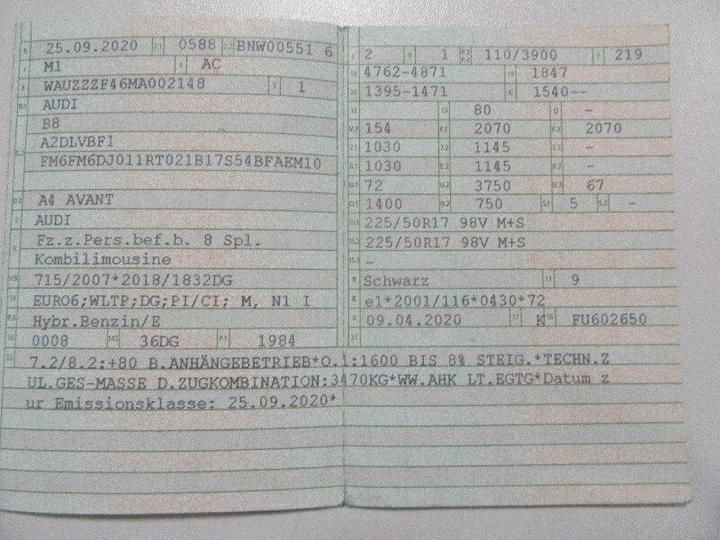 25.09.2020 0588 BNW00551 6
M1 AC
WAUZZZF46MA002148 1
AUDI
B8
A2DLVBF1
FM6FM6DJ011RT021B17S54BFAEM10
A4 AVANT
AUDI
Fz.z.Pers.bef.b. 8 Spl.
Kombilimousine
715/2007*2018/1832DG
EURO6;WLTP;DG;PI/CI; M, N1 I
Hybr.Benzin/E
0008 36DG 1984
2 1 110/3900 219
4762-4871 1847
1395-1471 1540--
- 80 -
154 2070 2070
1030 1145 -
1030 1145 -
72 3750 67
1400 750 5 -
225/50R17 98V M+S
225/50R17 98V M+S
-
Schwarz 9
e1*2001/116*0430*72
09.04.2020 K FU602650
7.2/8.2:+80 B.ANHÄNGEBETRIEB*O.1:1600 BIS 8% STEIG.*TECHN.Z
UL.GES-MASSE D.ZUGKOMBINATION:3470KG*WW.AHK LT.EGTG*Datum z
ur Emissionsklasse: 25.09.2020*